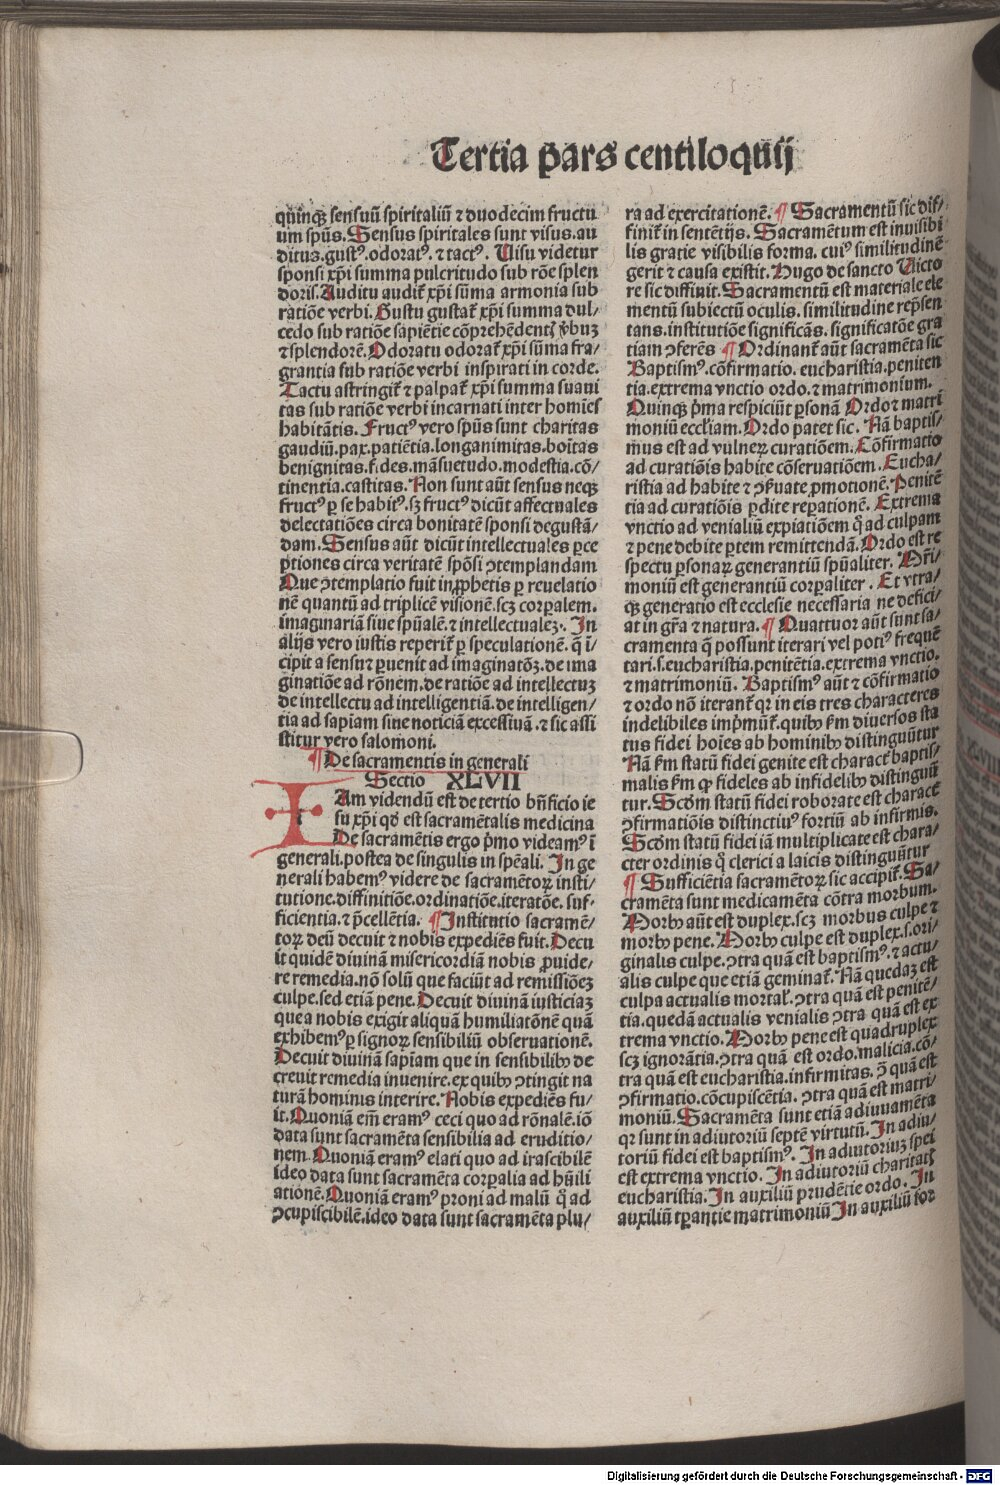 Tertia pars centiloquij
quinqꝫ sensuū spiritaliū ⁊ duodecim fructu
um spūs. Sensus spirituales sunt visus. au
ditus. gustꝰ. odoratꝰ. ⁊ tactꝰ. Uisu videtur
sponsi xp̄i summa pulcritudo sub rōe splen
doris. Auditu audit᷑ xp̄i sūma armonia sub
ratiōe verbi. Gustu gustat᷑ xp̄i summa dul⸗
cedo sub ratiōe sapiētie cōprehēdentꝭ v̄buꝫ
⁊ splendorē. Odoratu odorat᷑ xp̄i sūma fra⸗
grantia sub ratiōe verbi inspirati in corde.
Tactu astringit᷑ ⁊ palpat᷑ xp̄i summa suaui
tas sub ratiōe verbi incarnati inter homīes
habitātis. Fructꝰ vero spūs sunt charitas
gaudiū. pax. patiētia. longanimitas. boītas
benignitas. fides. māsuetudo. modestia. cō⸗
tinentia. castitas. Non sunt aūt sensus neqꝫ
fructꝰ ꝑ se habitꝰ. sꝫ fructꝰ dicūt affectuales
delectatiōes circa bonitatē sponsi degustā⸗
dam. Sensus aūt dicūt intellectuales ꝑce
ptiones circa veritatē spōsi ↄtemplandam
Que ↄtemplatio fuit in ꝓphetis ꝑ reuelatio
nē quantū ad triplicē visionē. scꝫ corꝑalem.
imaginariā siue spūalē. ⁊ intellectualeꝫ. In
alijs vero iustis reperit᷑ ꝑ speculationē. q̄ ī⸗
cipit a sensu ⁊ ꝑuenit ad imaginatōꝫ. de ima
ginatiōe ad rōnem. de ratiōe ad intellectuꝫ
de intellectu ad intelligentiā. de intelligen⸗
tia ad sapiam siue noticiā excessiuā. ⁊ sic assi
stitur vero salomoni.
¶ De sacramentis in generali
Sectio XLVII
IAm videndū est de tertio bn̄ficio ie
su xp̄i qd̓ est sacramētalis medicina
De sacramētis ergo p̄mo videamꝰ ī
generali. postea de singulis in spēali. In ge
nerali habemꝰ videre de sacramētoꝝ insti⸗
tutione. diffinitiōe. ordinatiōe. iteratōe. suf⸗
ficientia. ⁊ p̄cellētia. ¶ Institutio sacramē⸗
toꝝ deū decuit ⁊ nobis expediēs fuit. Decu
it quidē diuinā misericordiā nobis ꝓuide⸗
re remedia. nō solū que faciūt ad remissiōeꝫ
culpe. sed etiā pene. Decuit diuinā iusticiaꝫ
que a nobis exigit aliquā humiliatōnē quā
exhibemꝰ ꝑ signoꝝ sensibiliū obseruationē.
Decuit diuinā sapiam que in sensibilibꝰ de
creuit remedia inuenire. ex quibꝰ ↄtingit na
turā hominis interire. Nobis expediēs fu⸗
it. Quoniā em̄ eramꝰ ceci quo ad rōnalē. iō
data sunt sacramēta sensibilia ad eruditio⸗
nem. Quoniā eramꝰ elati quo ad irascibilē
ideo data sunt sacramēta corꝑalia ad hūili
ationē. Quoniā eramꝰ proni ad malū q̊ ad
ↄcupiscibilē. ideo data sunt sacramēta plu⸗
ra ad exercitationē. ¶ Sacramentū sic dif⸗
finit᷑ in sentētijs. Sacramētum est inuisibi
lis gratie visibilis forma. cuiꝰ similitudinē
gerit ⁊ causa existit. Hugo de sancto Uicto
re sic diffinit. Sacramentū est materiale ele
mentū subiectū oculis. similitudine rep̄sen
tans. institutiōe significās. significatōe gra
tiam ↄferēs ¶ Ordinant᷑ aūt sacramēta sic
Baptismꝰ. cōfirmatio. eucharistia. peniten
tia. extrema vnctio ordo. ⁊ matrimonium.
Quinqꝫ p̄ma respiciūt ꝑsonā Ordo ⁊ matri
moniū eccl̓iam. Ordo patet sic. Nā baptis⸗
mus est ad vulneꝝ curatiōem. Cōfirmatio
ad curatiōis habite cōseruatiōem. Eucha⸗
ristia ad habite ⁊ ↄẜuate ꝓmotionē. Penitē
tia ad curatiōis ꝑdite reꝑationē. Extrema
vnctio ad venialiū expiatiōem q̊ ad culpam
⁊ pene debite ꝑtem remittendā. Ordo est re
spectu ꝑsonaꝝ generantiū spūaliter. Mr̄i⸗
moniū est generantiū corꝑaliter. Et vtra⸗
qꝫ generatio est ecclesie necessaria ne defici⸗
at in gr̄a ⁊ natura. ¶ Quattuor aūt sunt sa⸗
cramenta q̄ possunt iterari vel potiꝰ frequē
tari. s. eucharistia. penitētia. extrema vnctio.
⁊ matrimoniū. Baptismꝰ aūt ⁊ cōfirmatio
⁊ ordo nō iterant᷑ qꝛ in eis tres characteres
indelibiles imp̄mūt᷑. quibꝰ ẜm diuersos sta
tus fidei hoīes ab hominibꝰ distinguūtur
Nā ẜm statū fidei genite est charact᷑ baptis⸗
malis ẜm qꝫ fideles ab infidelibꝰ distinguū
tur. Scd̓m statū fidei roborate est charact᷑
ↄfirmatiōis distinctiuꝰ fortiū ab infirmis.
Scd̓m statū fidei iā multiplicate est chara⸗
cter ordinis q̊ clerici a laicis distinguūtur
¶ Sufficiētia sacramētoꝝ sic accipit᷑. Sa⸗
cramēta sunt medicamēta cōtra morbum.
Morbꝰ aūt est duplex. scꝫ morbus culpe ⁊
morbꝰ pene. Morbꝰ culpe est duplex. s. ori⸗
ginalis culpe. ↄtra quā est baptismꝰ. ⁊ actu⸗
alis culpe que etiā geminat᷑. Nā quedaꝫ est
culpa actualis mortal᷑. ↄtra quā est penitē⸗
tia. quedā actualis venialis ↄtra quā est ex
trema vnctio. Morbꝰ pene est quadruplex
scꝫ ignorātia. ↄtra quā est ordo. malicia. cō⸗
tra quā est eucharistia. infirmitas. ↄ̄ quā est
ↄfirmatio. cōcupiscētia. ↄtra quā est matri⸗
moniū. Sacramēta sunt etiā adiuuamēta
qꝛ sunt in adiutoriū septē virtutū. In adiu⸗
toriū fidei est baptismꝰ. In adiutoriuꝫ spei
est extrema vnctio. In adiutoriū charitatꝭ
eucharistia. In auxiliū prudētie ordo. In
auxiliū tꝑantie matrimoniū In auxiliū for
Digitalisierung gefördert durch die Deutsche Forschungsgemeinschaft - DFG